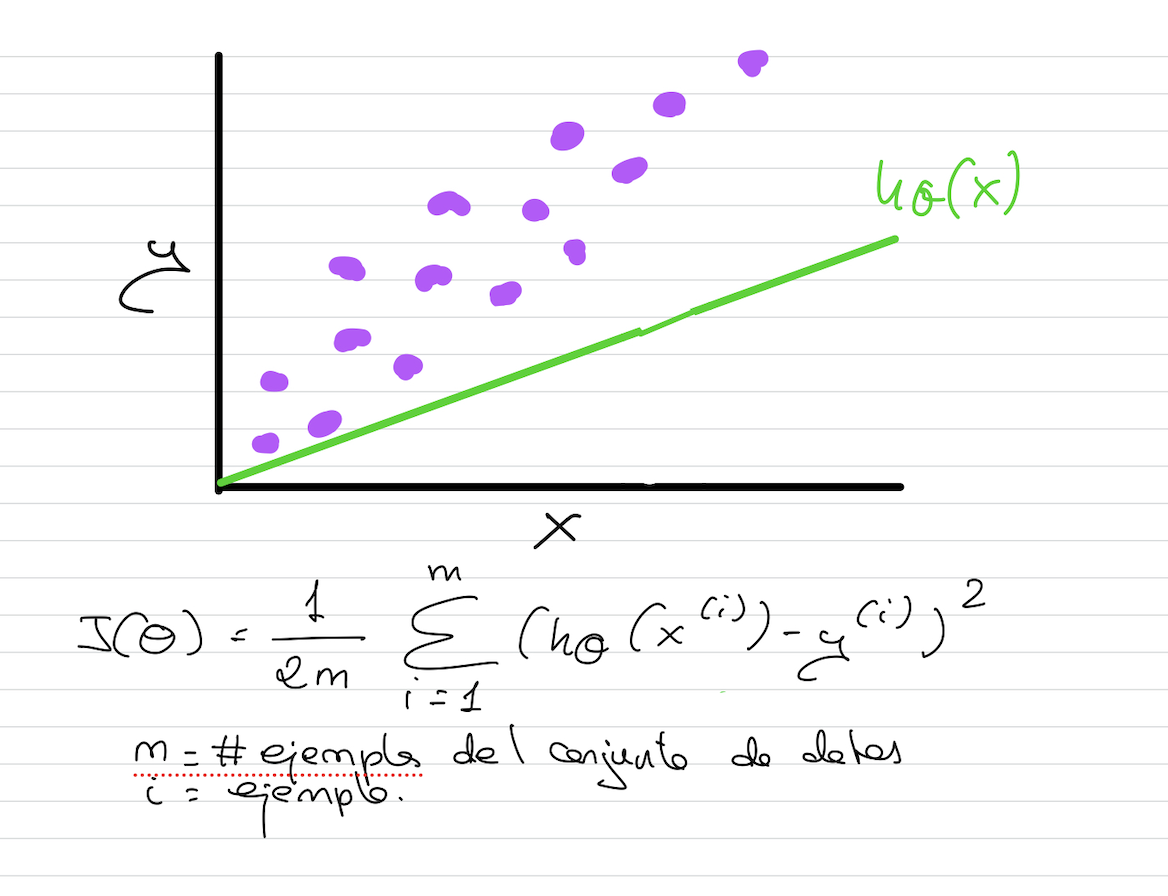 y
hθ(x)
x
J(θ) = 1/2m m∑i=1 (hθ(x⁽ⁱ⁾) - y⁽ⁱ⁾)²
m = # ejemplos del conjunto de datos
i = ejemplo.